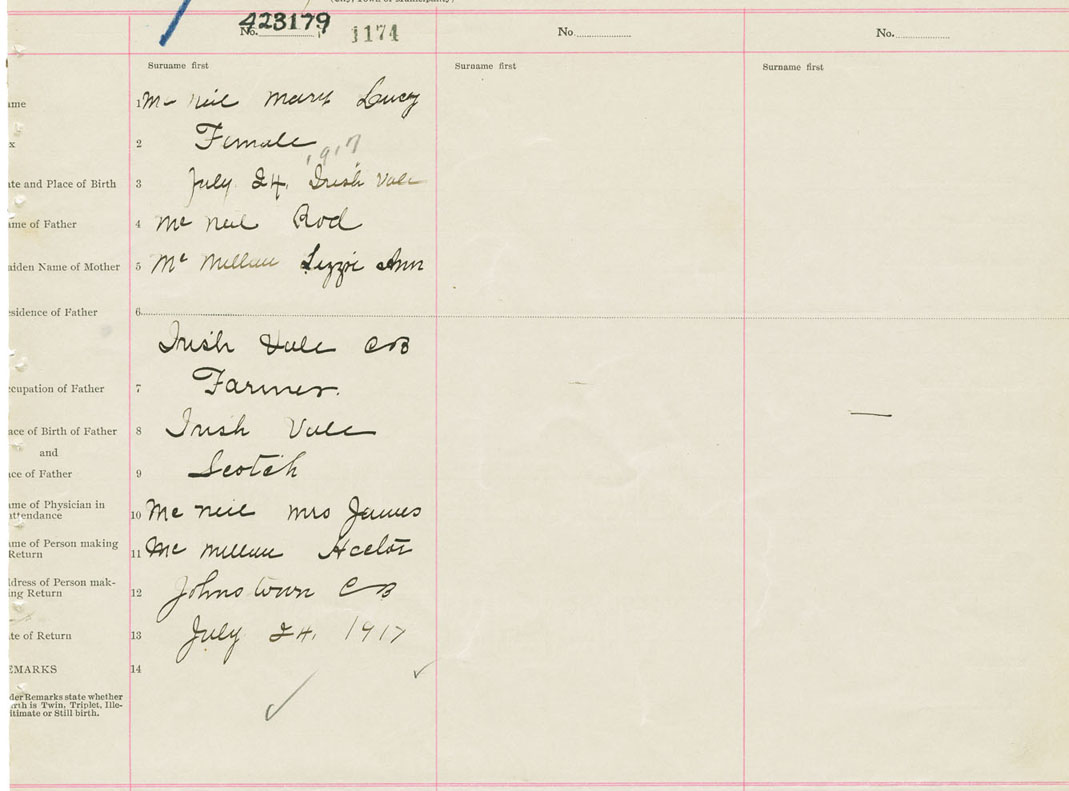 (City, Town or Municipality)
No. 423179 1174 No. No.
Surname first Surname first Surname first
ame 1 Mc Neil Mary Lucy
x 2 Female
1917
ate and Place of Birth 3 July 24. Irish Vale
ame of Father 4 Mc Neil Rod
aiden Name of Mother 5 Mc Millan Lizzie Ann
esidence of Father 6
Irish Vale CB
ccupation of Father 7 Farmer.
ace of Birth of Father 8 Irish Vale
and
ce of Father 9 Scotch
ame of Physician in
attendance 10 Mc Neil Mrs James
ame of Person making
Return 11 Mc Millan Hector
ddress of Person mak-
ing Return 12 Johnstown CB
te of Return 13 July 24. 1917
EMARKS 14
der Remarks state whether
rth is Twin, Triplet, Ille-
itimate or Still birth.